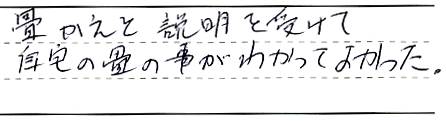 畳かえと説明を受けて
自宅の畳の事がわかってよかった。